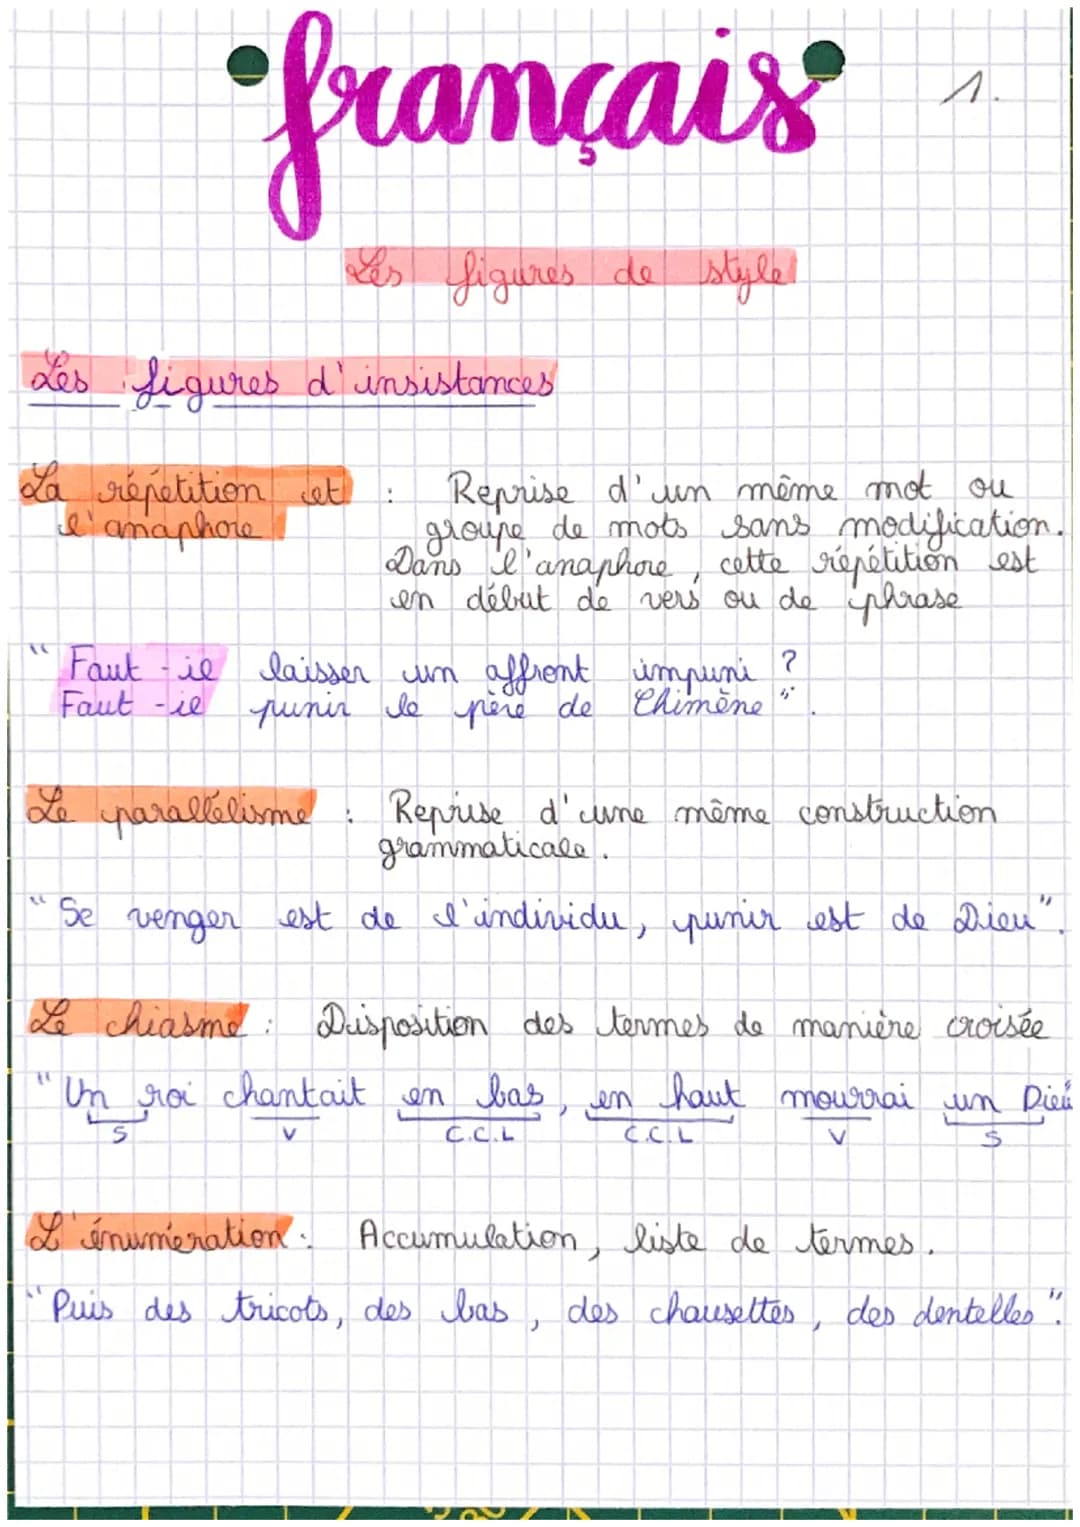 français 1.
Les figures de style
Les figures d'insistances
La répétition et : Reprise d'un même mot ou
l'anaphore groupe de mots sans modification.
Dans l'anaphore, cette répétition est
en début de vers ou de phrase
"Faut-il laisser un affront impuni ?
Faut-il punir le père de Chimène".
Le parallélisme : Reprise d'une même construction
grammaticale.
"Se venger est de l'individu, punir est de Dieu".
Le chiasme : Disposition des termes de manière croisée
"Un roi chantait en bas, en haut mourrai un Dieu
S V C.C.L C.C.L V S
L'énumération : Accumulation, liste de termes.
"Puis des tricots, des bas, des chausettes, des dentelles".